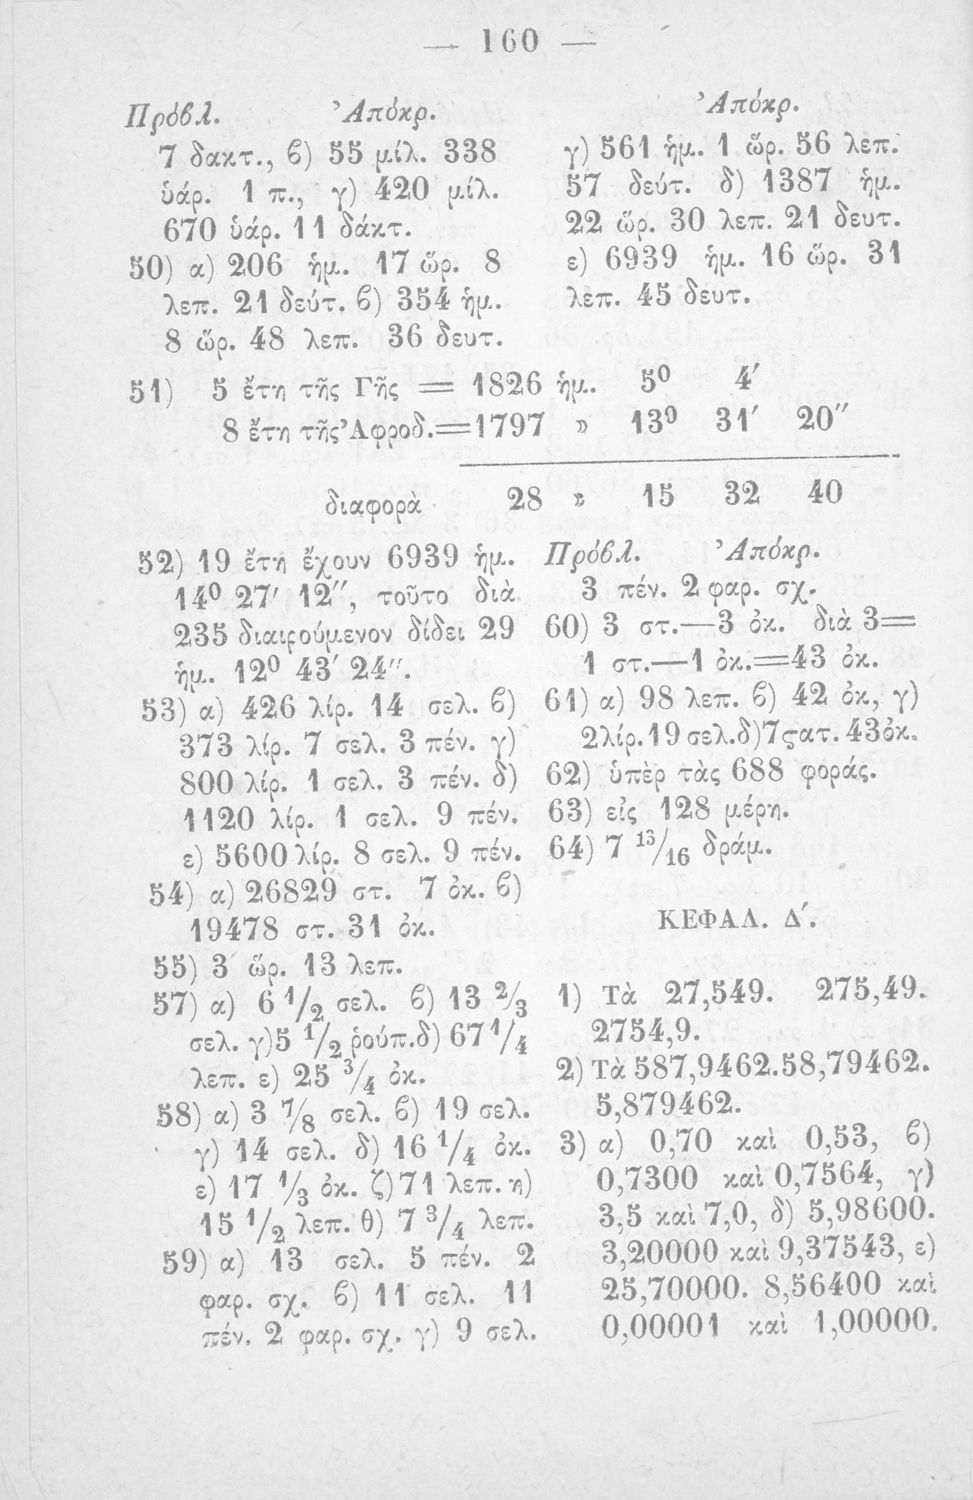 — 160 —
Πρόβλ. Ἀπόκρ.
7 δακτ., β) 55 μίλ. 338
ὑάρ. 1 π., γ) 420 μίλ.
670 ὑάρ. 11 δάκτ.
50) α) 206 ἡμ. 17 ὥρ. 8
λεπ. 21 δεύτ. β) 354 ἡμ.
8 ὥρ. 48 λεπ. 36 δευτ.
Ἀπόκρ.
γ) 561 ἡμ. 1 ὥρ. 56 λεπ.
57 δεύτ. δ) 1387 ἡμ.
22 ὥρ. 30 λεπ. 21 δευτ.
ε) 6939 ἡμ. 16 ὥρ. 31
λεπ. 45 δευτ.
51) 5 ἔτη τῆς Γῆς = 1826 ἡμ. 5⁰ 4′
8 ἔτη τῆς Ἀφροδ. = 1797 » 13⁰ 31′ 20″
διαφορὰ 28 » 15 32 40
52) 19 ἔτη ἔχουν 6939 ἡμ.
14⁰ 27′ 12″, τοῦτο διὰ
235 διαιρούμενον δίδει 29
ἡμ. 12⁰ 43′ 24″.
53) α) 426 λίρ. 14 σελ. β)
373 λίρ. 7 σελ. 3 πέν. γ)
800 λίρ. 1 σελ. 3 πέν. δ)
1120 λίρ. 1 σελ. 9 πέν.
ε) 5600 λίρ. 8 σελ. 9 πέν.
54) α) 26829 στ. 7 ὀκ. β)
19478 στ. 31 ὀκ.
55) 3 ὥρ. 13 λεπ.
57) α) 6 1/2 σελ. β) 13 2/3
σελ. γ) 5 1/2 ῥούπ. δ) 67 1/4
λεπ. ε) 25 3/4 ὀκ.
58) α) 3 7/8 σελ. β) 19 σελ.
γ) 14 σελ. δ) 16 1/4 ὀκ.
ε) 17 1/3 ὀκ. ζ) 71 λεπ. η)
15 1/2 λεπ. θ) 7 3/4 λεπ.
59) α) 13 σελ. 5 πέν. 2
φαρ. σχ. β) 11 σελ. 11
πέν. 2 φαρ. σχ. γ) 9 σελ.
Πρόβλ. Ἀπόκρ.
3 πέν. 2 φαρ. σχ.
60) 3 στ.—3 ὀκ. διὰ 3=
1 στ.—1 ὀκ.=43 ὀκ.
61) α) 98 λεπ. β) 42 ὀκ, γ)
2 λίρ. 19 σελ. δ) 7 ϛατ. 43 ὀκ.
62) ὑπὲρ τὰς 688 φοράς.
63) εἰς 128 μέρη.
64) 7 13/16 δράμ.
ΚΕΦΑΛ. Δ΄.
1) Τὰ 27,549. 275,49.
2754,9.
2) Τὰ 587,9462. 58,79462.
5,879462.
3) α) 0,70 καὶ 0,53, β)
0,7300 καὶ 0,7564, γ)
3,5 καὶ 7,0, δ) 5,98600.
3,20000 καὶ 9,37543, ε)
25,70000. 8,56400 καὶ
0,00001 καὶ 1,00000.